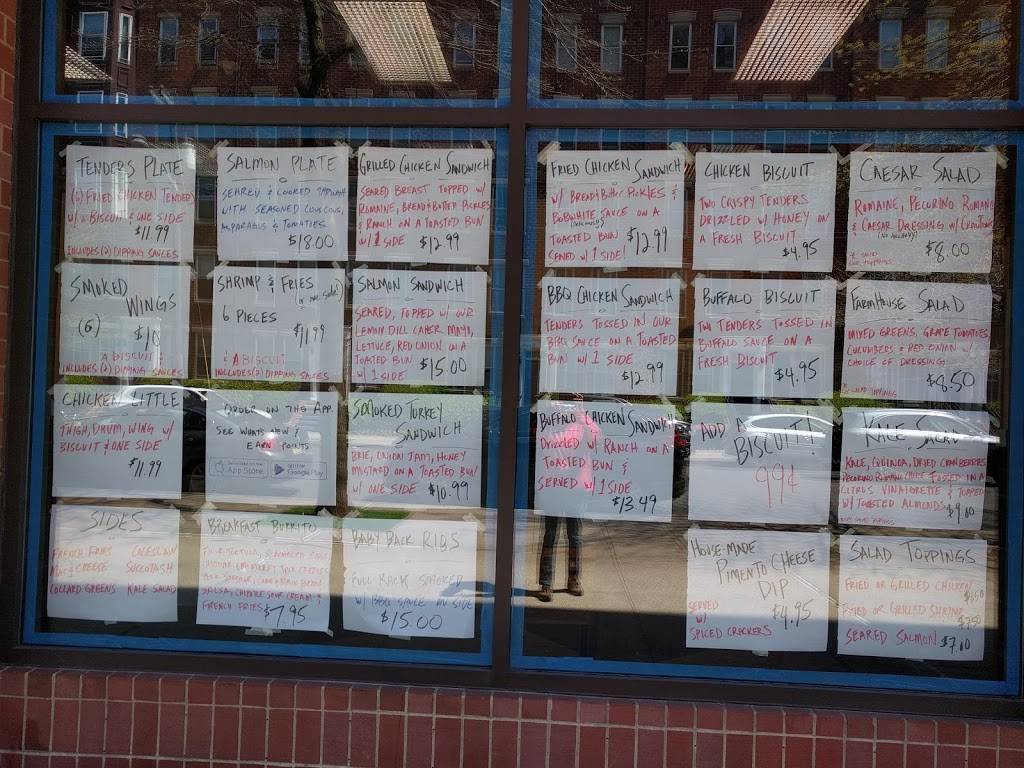 TENDERS PLATE
(6) FRIED CHICKEN TENDERS
W/ A BISCUIT & ONE SIDE
$11.99
INCLUDES (2) DIPPING SAUCES
SALMON PLATE
SEARED &
WITH SEASONED COUSCOUS,
ASPARAGUS & TOMATOES
$18.00
GRILLED CHICKEN SANDWICH
SEARED BREAST TOPPED W/
ROMAINE, BREAD & BUTTER PICKLES
& RANCH ON A TOASTED BUN
W/ 1 SIDE $12.99
FRIED CHICKEN SANDWICH
W/ BREAD & BUTTER PICKLES &
BOBWHITE SAUCE ON A
TOASTED BUN $12.99
SERVED W/ 1 SIDE
CHICKEN BISCUIT
TWO CRISPY TENDERS
DRIZZLED W/ HONEY ON
A FRESH BISCUIT
$4.95
CAESAR SALAD
ROMAINE, PECORINO ROMANO
& CAESAR DRESSING W/ CROUTONS
(NO ANCHOVY)
$8.00
SMOKED
WINGS
(6) $10
A BISCUIT &
INCLUDES (2) DIPPING SAUCES
SHRIMP & FRIES
6 PIECES
$11.99
A BISCUIT
INCLUDES (2) DIPPING SAUCES
SALMON SANDWICH
SEARED, TOPPED W/ OUR
LEMON DILL CAPER MAYO,
LETTUCE, RED ONION ON A
TOASTED BUN
W/ 1 SIDE $15.00
BBQ CHICKEN SANDWICH
TENDERS TOSSED IN OUR
BBQ SAUCE ON A TOASTED
BUN W/ 1 SIDE
$12.99
BUFFALO BISCUIT
TWO TENDERS TOSSED IN
BUFFALO SAUCE ON A
FRESH BISCUIT
$4.95
FARMHOUSE SALAD
MIXED GREENS, GRAPE TOMATOES,
CUCUMBERS & RED ONION W/
CHOICE OF DRESSING
$8.50
CHICKEN LITTLE
THIGH, DRUM, WING W/
BISCUIT & ONE SIDE
$11.99
ORDER ON THE APP
SEE WHATS NEW &
EARN POINTS
App Store
Google Play
SMOKED TURKEY
SANDWICH
BRIE, ONION JAM, HONEY
MUSTARD ON A TOASTED BUN
W/ ONE SIDE $10.99
BUFFALO CHICKEN SANDWICH
DRIZZLED W/ RANCH ON A
TOASTED BUN &
SERVED W/ 1 SIDE
$13.49
ADD A
BISCUIT!
99¢
KALE SALAD
KALE, QUINOA, DRIED CRANBERRIES,
PECORINO ROMANO CHEESE TOSSED IN A
CITRUS VINAIGRETTE & TOPPED
W/ TOASTED ALMONDS $9.00
SIDES
FRENCH FRIES COLESLAW
MAC & CHEESE SUCCOTASH
COLLARD GREENS KALE SALAD
BREAKFAST BURRITO
SALSA, CHIPOTLE SOUR CREAM &
FRENCH FRIES $7.95
BABY BACK RIBS
FULL RACK SMOKED
W/ BBQ SAUCE ON SIDE
$15.00
HOUSE-MADE
PIMENTO CHEESE
DIP
SERVED
W/ $4.95
SPICED CRACKERS
SALAD TOPPINGS
FRIED OR GRILLED CHICKEN
FRIED OR GRILLED SHRIMP
SEARED SALMON